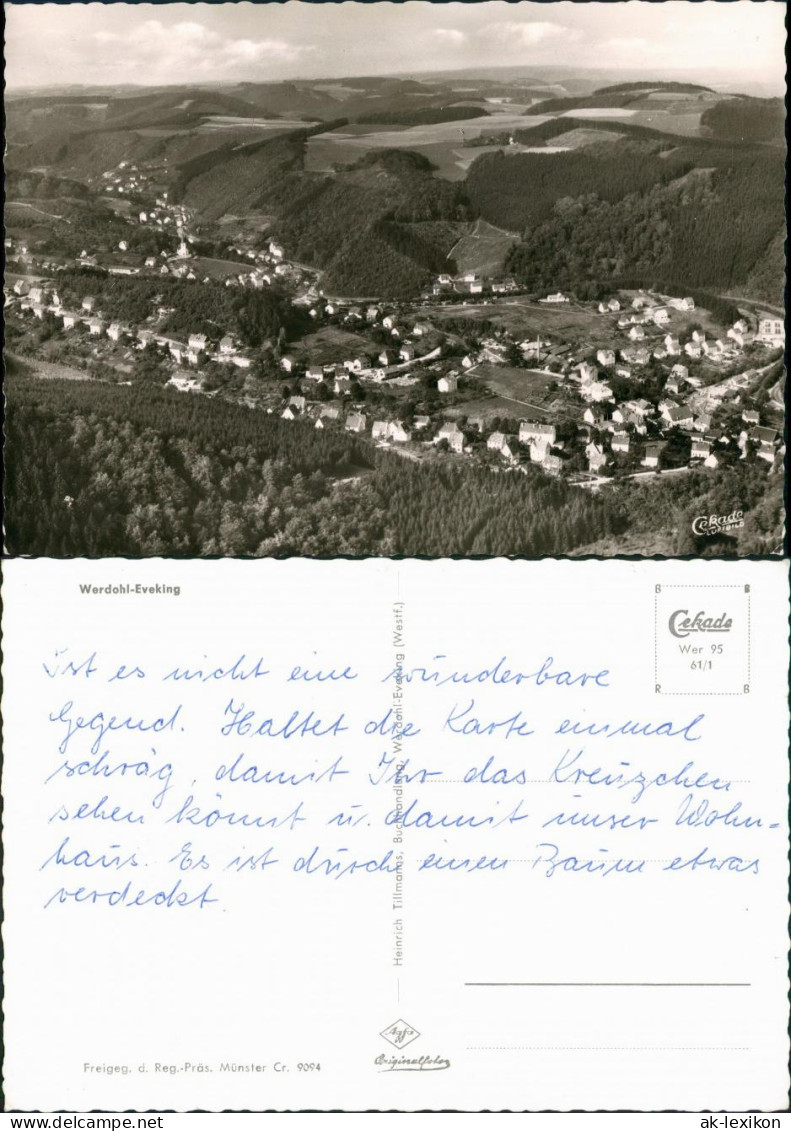 Cekade
LUFTBILD
Werdohl-Eveking
Ist es nicht eine wunderbare
Gegend. Haltet die Karte einmal
schräg, damit Ihr das Kreuzchen
sehen könnt u. damit unser Wohn=
haus. Es ist durch einen Baum etwas
verdeckt.
Heinrich Tillmanns, Buchhandlung, Werdohl-Eveking (Westf.)
Cekade
Wer 95
61/1
Agfa
Originalfoto
Freigeg. d. Reg.-Präs. Münster Cr. 9094
ak-lexikon
ak-lexikon.com